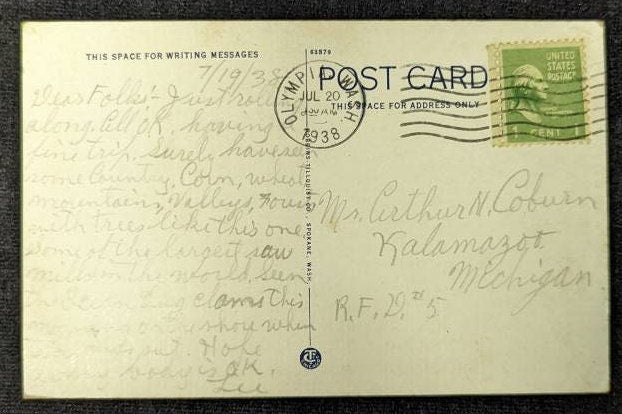 THIS SPACE FOR WRITING MESSAGES
63879
POST CARD
THIS SPACE FOR ADDRESS ONLY
UNITED
STATES
POSTAGE
1 CENT 1
OLYMPIA WASH
JUL 20
1938
7/19/38
Dear Folks:- Just
along. All OK, having
trip. Surely have seen
some Country, Corn, wheat
mountains, Valleys,
with trees like this one
some of the largest saw
mills in the world. Seen
dug clams this
morning on the shore when
out. Hope
body is OK.
Lee
Mr. Arthur N. Coburn
Kalamazoo
Michigan
R.F.D. #5
TILLQUIST CO., SPOKANE, WASH.